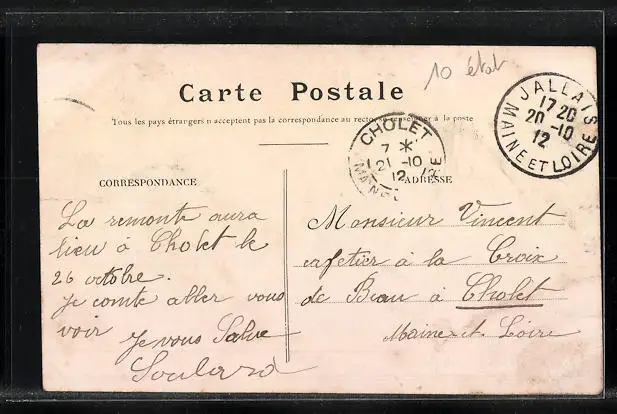 10 état
Carte Postale
Tous les pays étrangers n acceptent pas la correspondance au recto, se renseigner à la poste
JALLAIS
17 20
20 -10
12
MAINE ET LOIRE
CHOLET
7 *
21 -10
12
CORRESPONDANCE
ADRESSE
La remonte aura
lieu à Cholet le
26 octobre.
Je comte aller vous
voir
Je vous Salue
Soulard
Monsieur Vincent
cafetier à la Croix
de Beau à Cholet
Maine-et-Loire